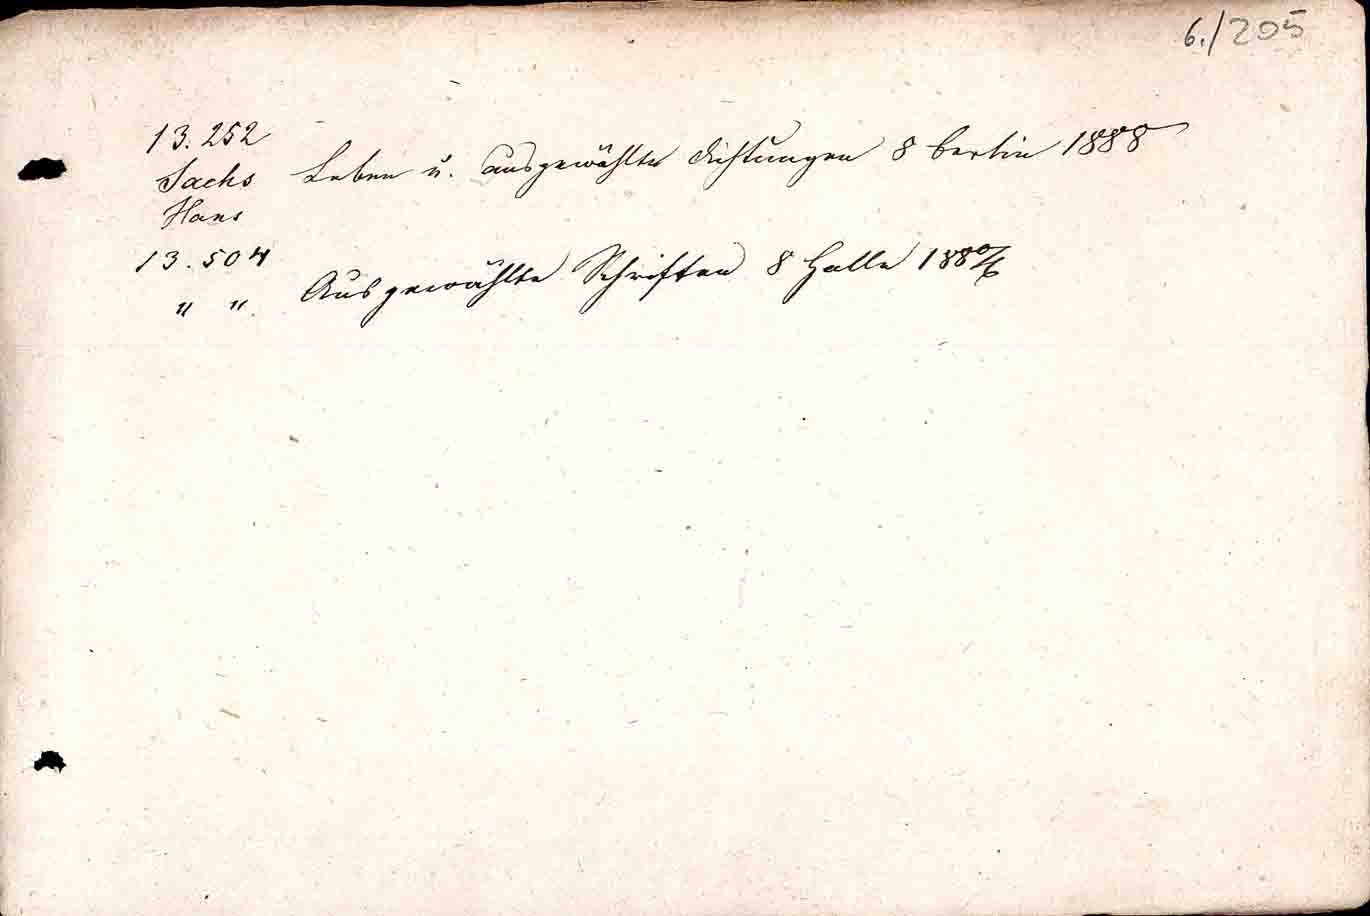 6./205
13.252
Sachs Leben u. ausgewählte Dichtungen 8 Berlin 1888
Hans
13.504
" " Ausgewählte Schriften 8 Halle 1880/6